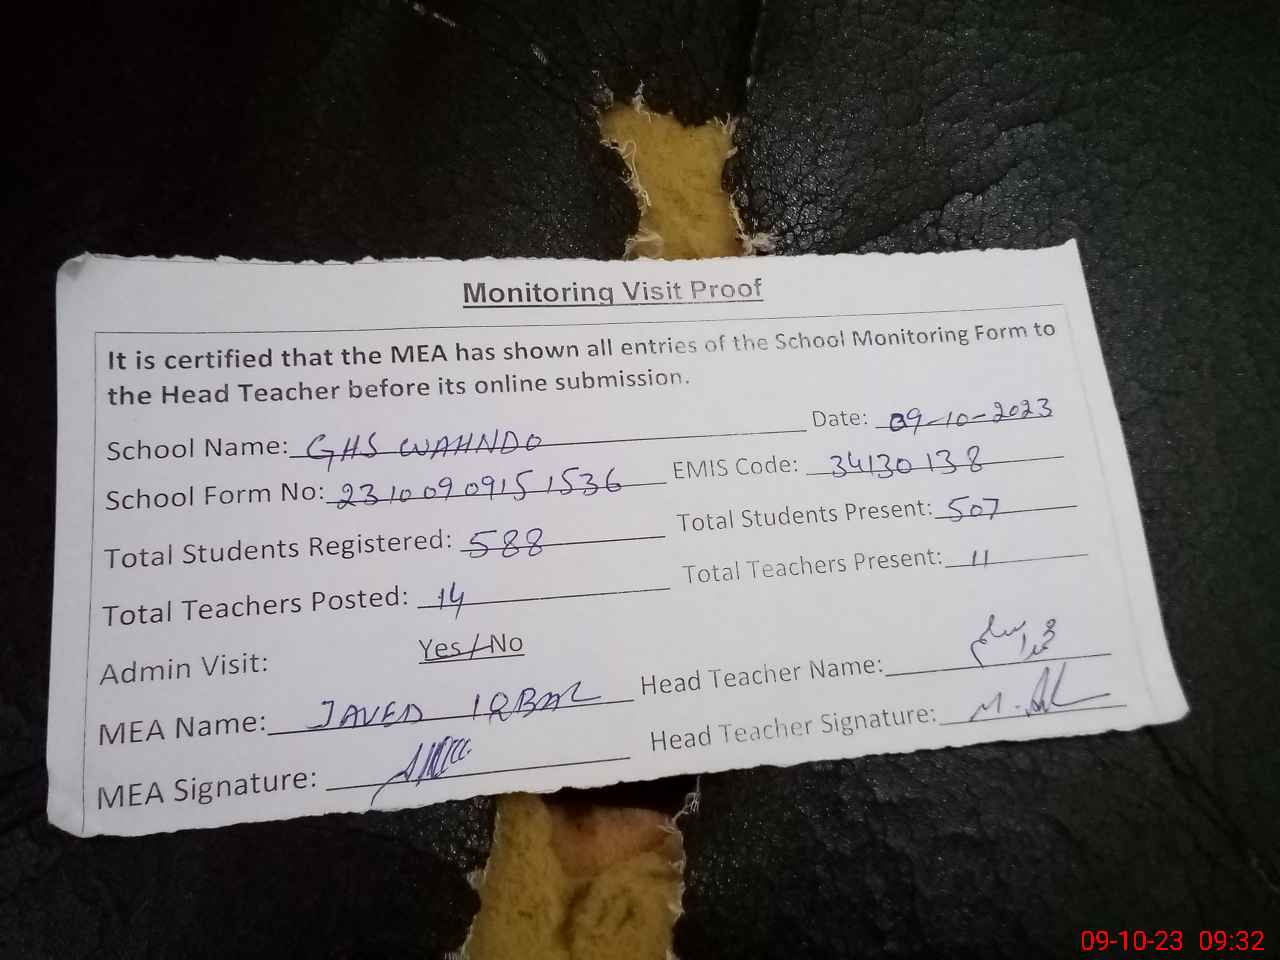 Monitoring Visit Proof
It is certified that the MEA has shown all entries of the School Monitoring Form to
the Head Teacher before its online submission.
School Name: GHS WAHNDO Date: 09-10-2023
School Form No: 23100909151536 EMIS Code: 34130138
Total Students Registered: 588 Total Students Present: 507
Total Teachers Posted: 14 Total Teachers Present: 11
Admin Visit: Yes / No
MEA Name: JAVED IQBAL Head Teacher Name:
MEA Signature: Head Teacher Signature:
09-10-23 09:32